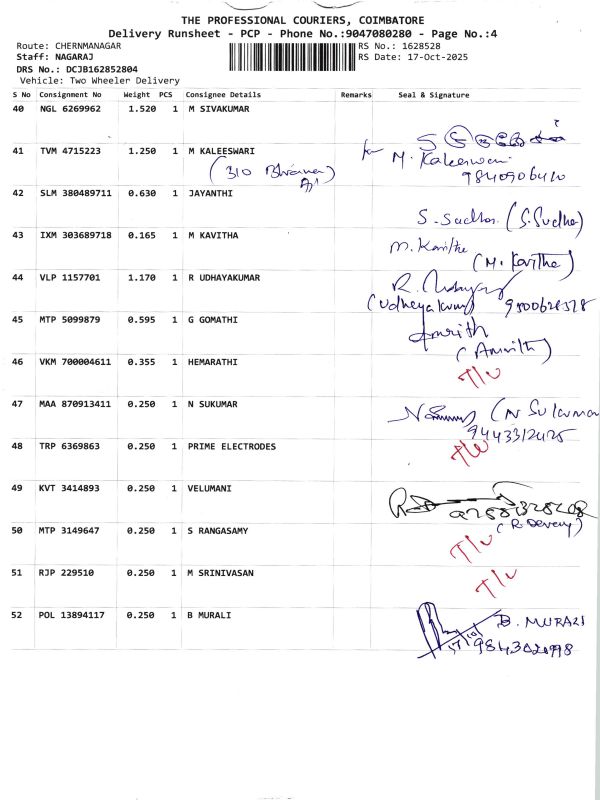 THE PROFESSIONAL COURIERS, COIMBATORE
Delivery Runsheet - PCP - Phone No.:9047080280 - Page No.:4
Route: CHERNMANAGAR RS No.: 1628528
Staff: NAGARAJ RS Date: 17-Oct-2025
DRS No.: DCJB162852804
Vehicle: Two Wheeler Delivery
S No Consignment No Weight PCS Consignee Details Remarks Seal & Signature
40 NGL 6269962 1.520 1 M SIVAKUMAR
41 TVM 4715223 1.250 1 M KALEESWARI M. Kaleeswari
(310
42 SLM 380489711 0.630 1 JAYANTHI
S. Sudha (S. Sudha)
43 IXM 303689718 0.165 1 M KAVITHA M. Kavitha
(M. Kavitha)
44 VLP 1157701 1.170 1 R UDHAYAKUMAR
(Udhayakumar)
45 MTP 5099879 0.595 1 G GOMATHI Amrith
(Amrith)
46 VKM 700004611 0.355 1 HEMARATHI T/L
47 MAA 870913411 0.250 1 N SUKUMAR (N Sukumar
9443312425
48 TRP 6369863 0.250 1 PRIME ELECTRODES T/L
49 KVT 3414893 0.250 1 VELUMANI
50 MTP 3149647 0.250 1 S RANGASAMY T/L
51 RJP 229510 0.250 1 M SRINIVASAN T/L
52 POL 13894117 0.250 1 B MURALI B. MURALI